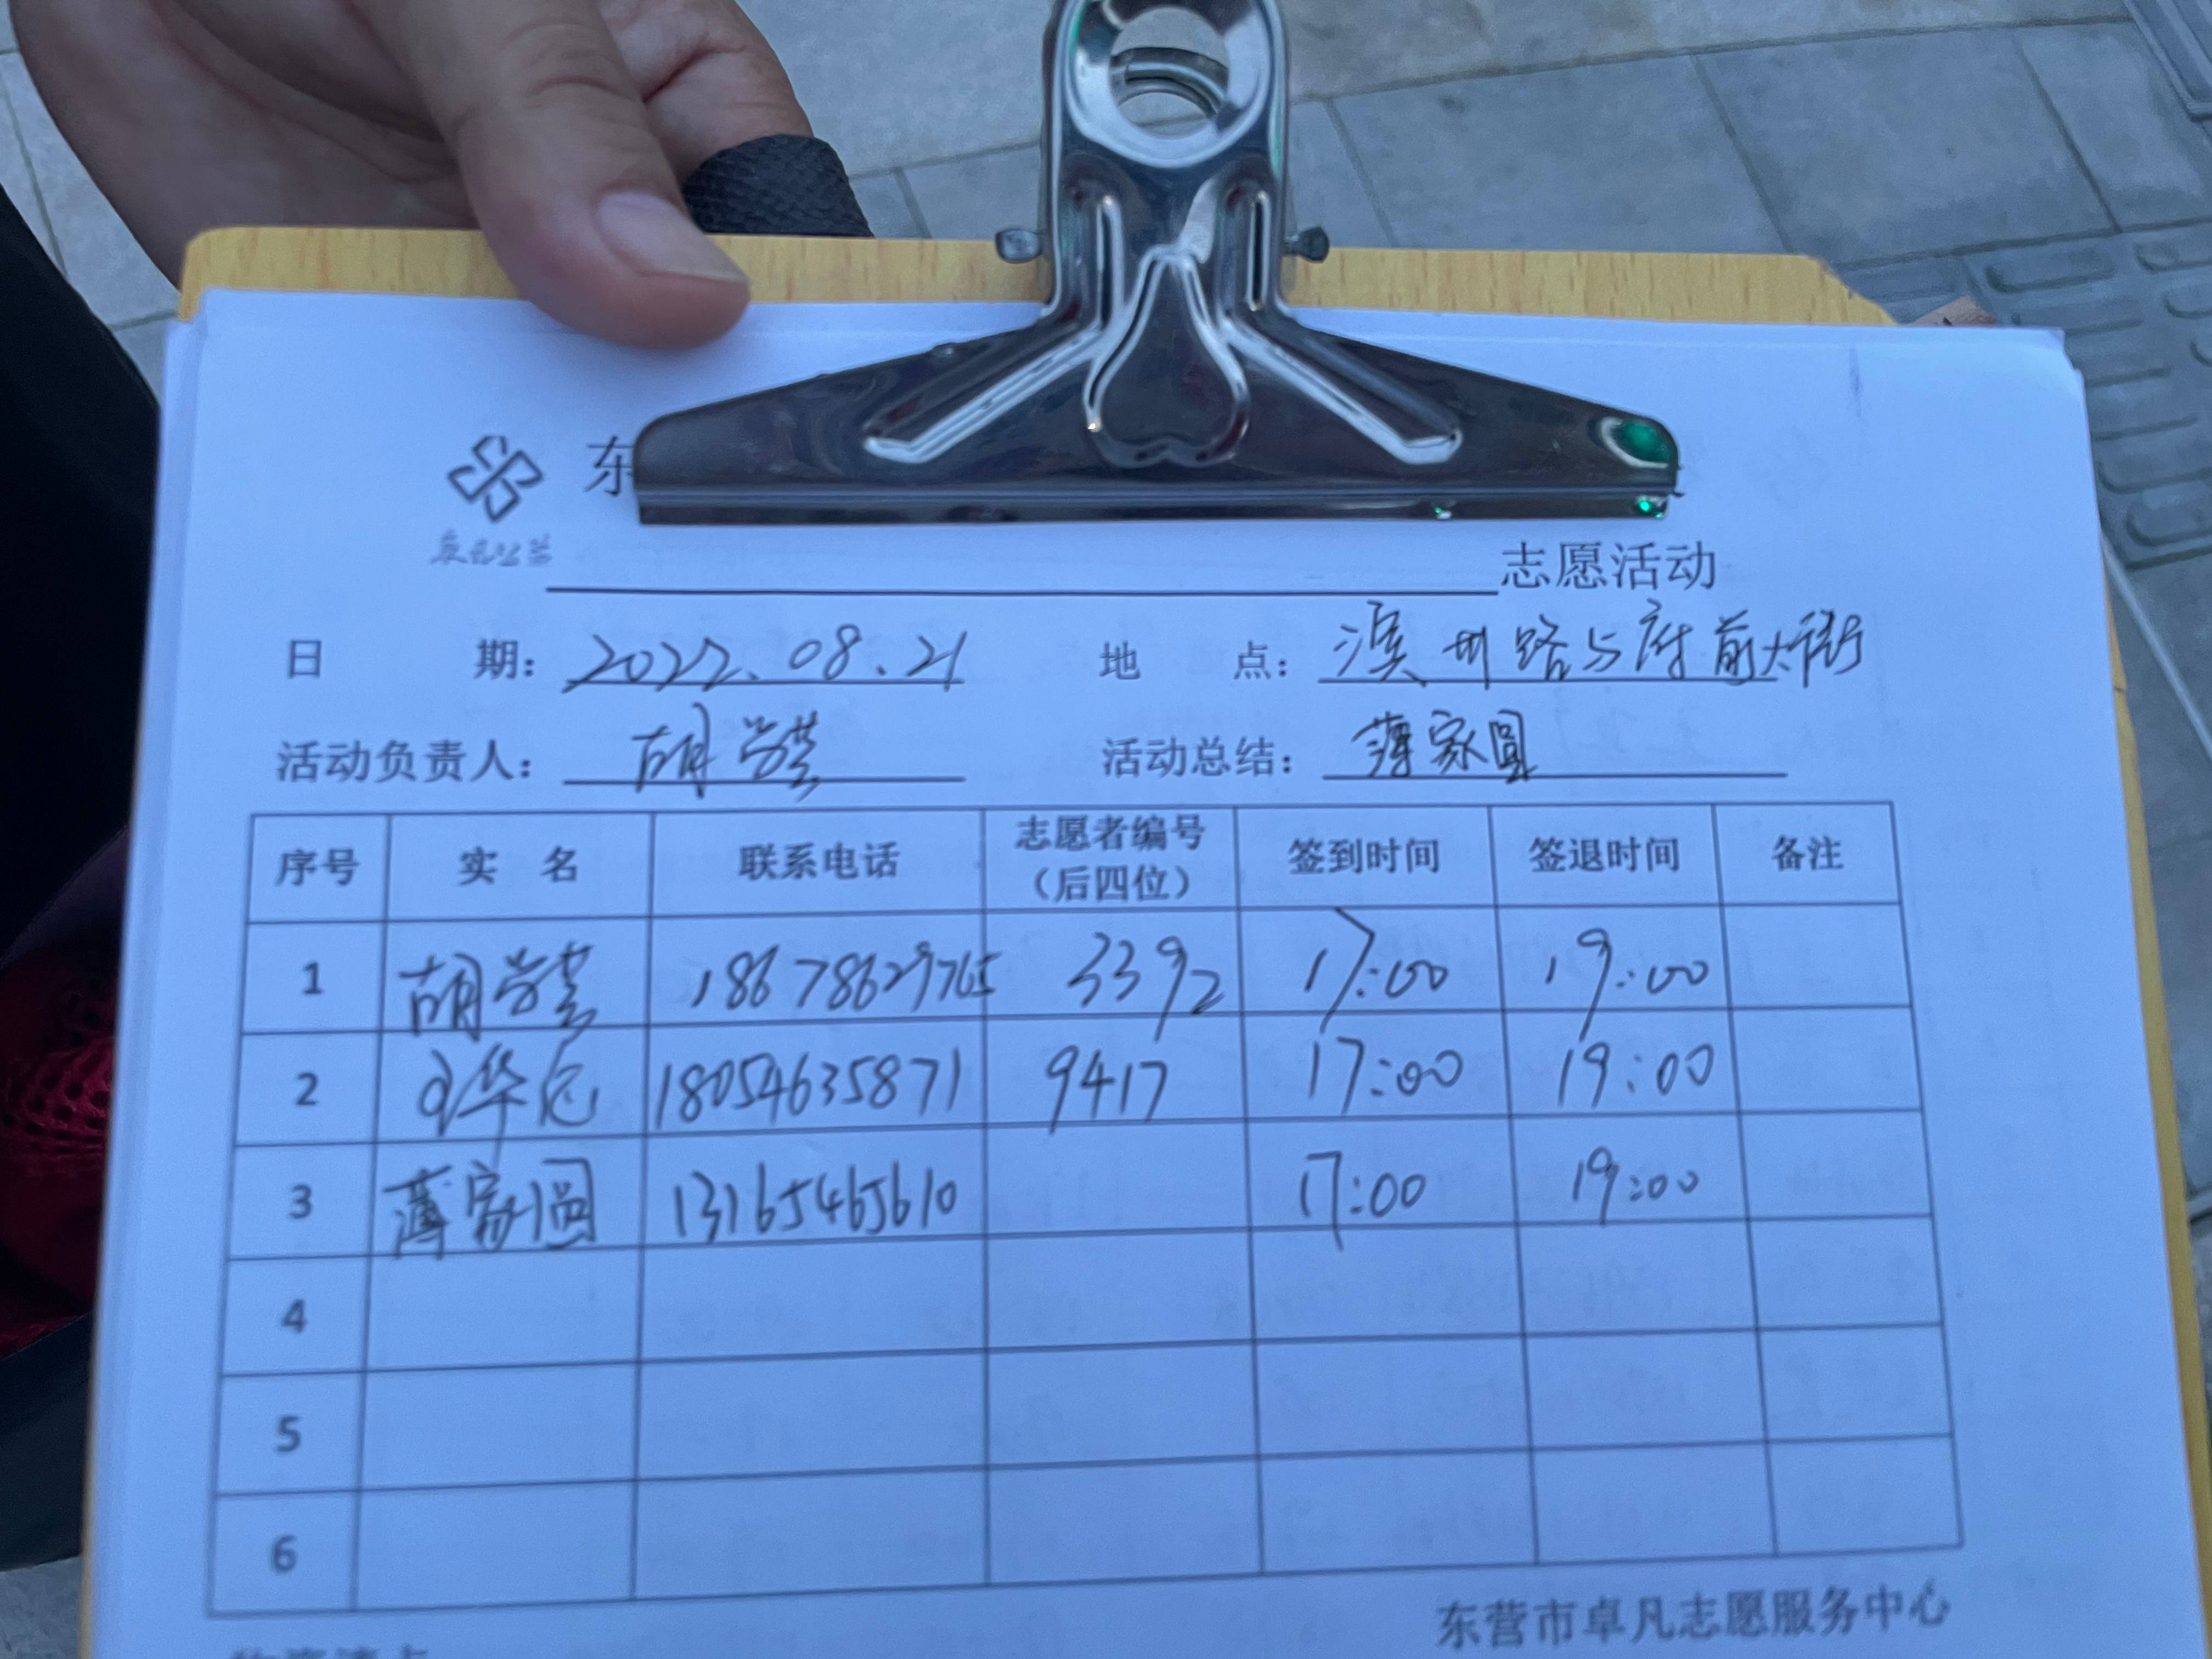 东
卓凡公益
志愿活动
日 期: 2022.08.21 地 点: 滨州路与府前大街
活动负责人: 胡学芸 活动总结: 薄家圆
序号 实 名 联系电话 志愿者编号(后四位) 签到时间 签退时间 备注
1 胡学芸 18678629765 3392 17:00 19:00
2 18054635871 9417 17:00 19:00
3 薄家圆 13165465610 17:00 19:00
4
5
6
东营市卓凡志愿服务中心